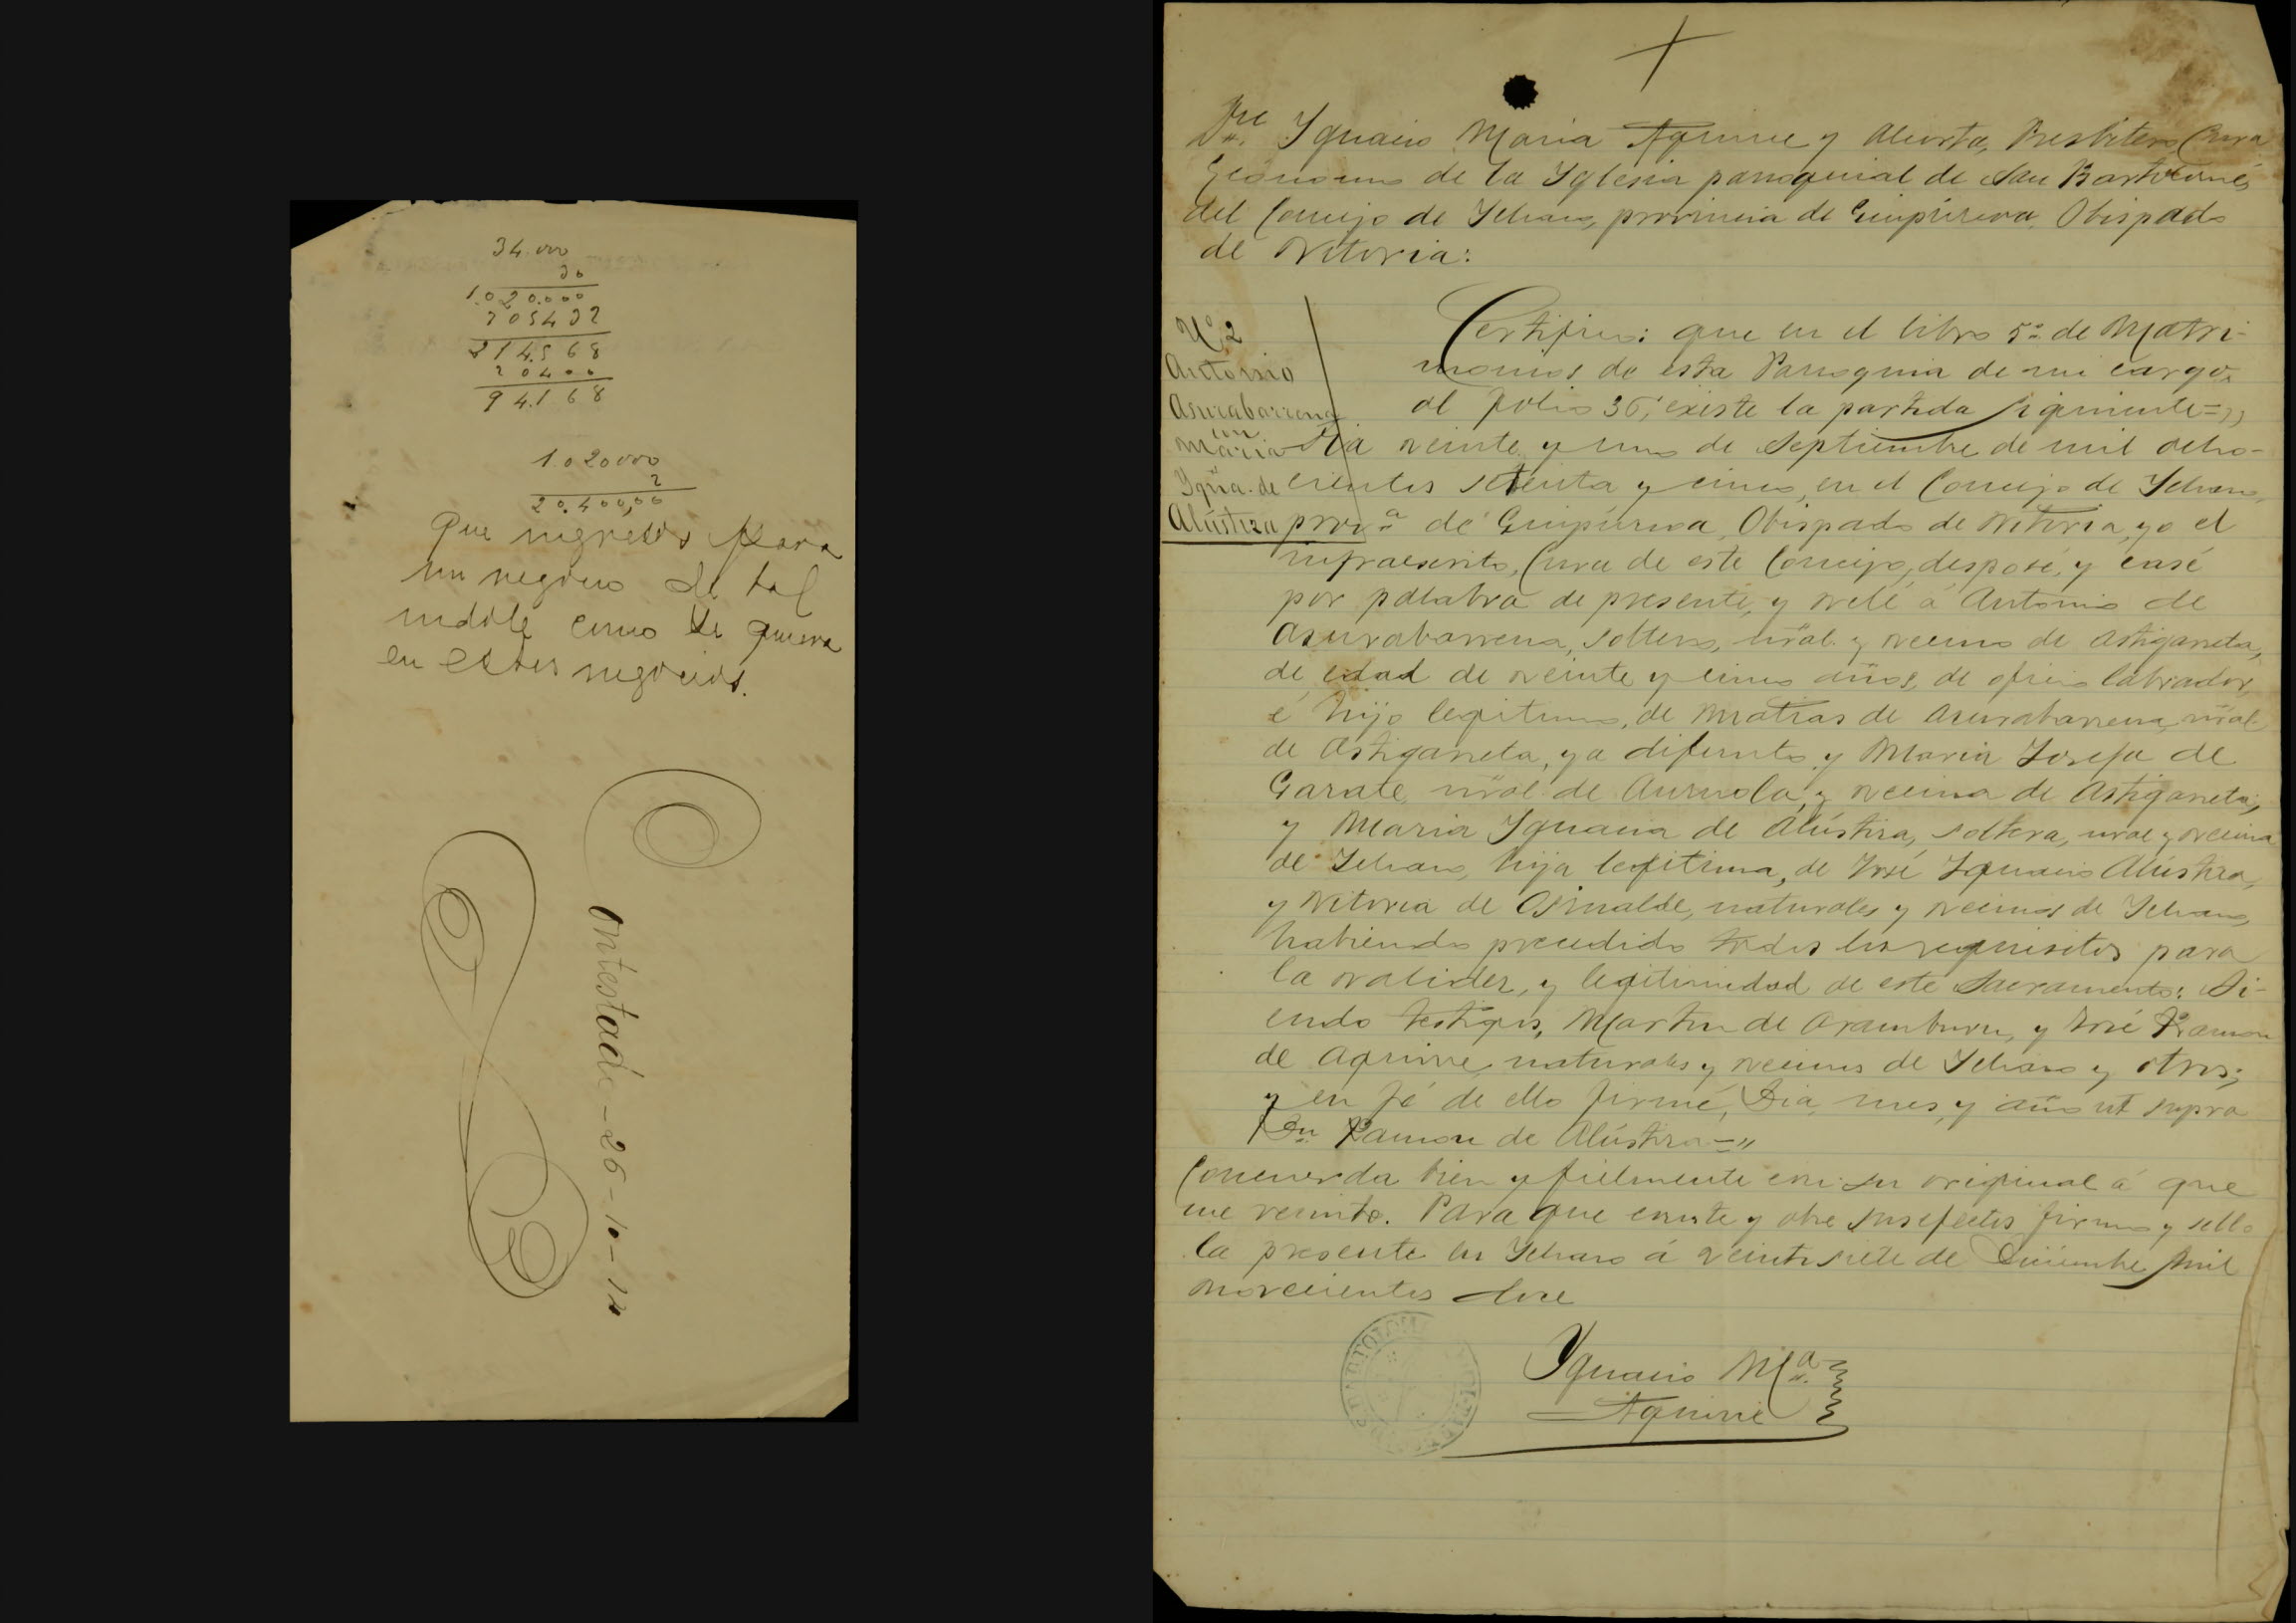 34.000
30
1.020.000
205432
214.568
20400
94.168
1.020000
2
20.400,00
que ingresos para
un negocio de tal
indole como se quiera
en estos negocios.
Contestada - 26 - 10 - 12
Ygnacio Maria Aguirre y Aliorta, Presbitero Cura
Ecónomo de la Yglesia parroquial de San Bartolomé
del Concejo de Ychaso, provincia de Guipúzcoa, Obispado
de Vitoria:
Nº 2
Antonio
Azurabarrena
con
Maria
Ygñª. de
Alústiza
Certifico: que en el libro 5º de Matri-
monios de esta Parroquia de mi cargo,
al folio 36, existe la partida siguiente="
Dia veinte y uno de Septiembre de mil ocho-
cientos setenta y cinco, en el Concejo de Ychaso,
provª de Guipúzcoa, Obispado de Vitoria, yo el
infraescrito, Cura de este Concejo, desposé, y casé
por palabra de presente, y velé á Antonio de
Azurabarrena, soltero, nral. y vecino de Astigarreta,
de edad de veinte y cinco años, de oficio labrador,
é hijo legitimo, de Matias de Azurabarrena, nral.
de Astigarreta, ya difunto, y Maria Josefa de
Garate, nral. de Aurnola, y vecina de Astigarreta;
y Maria Ygnacia de Alústiza, soltera, nral y vecina
de Ychaso, hija legitima, de José Ygnacio Alústiza,
y Vitoria de Osinalde, naturales y vecinos de Ychaso,
habiendo precedido todos los requisitos para
la validez, y legitimidad de este Sacramento: Si-
endo testigos, Martin de Aramburu, y José Ramon
de Aguirre, naturales y vecinos de Ychaso y otros;
y en fé de ello firmé, Dia, mes, y año ut supra
Dn Ramon de Alústiza="
Concuerda bien y fielmente con su original á que
me remito. Para que conste y obre sus efectos firmo y sello
la presente en Ychaso á veintisiete de Diciembre mil
novecientos doce
Ygnacio Mª
Aguirre